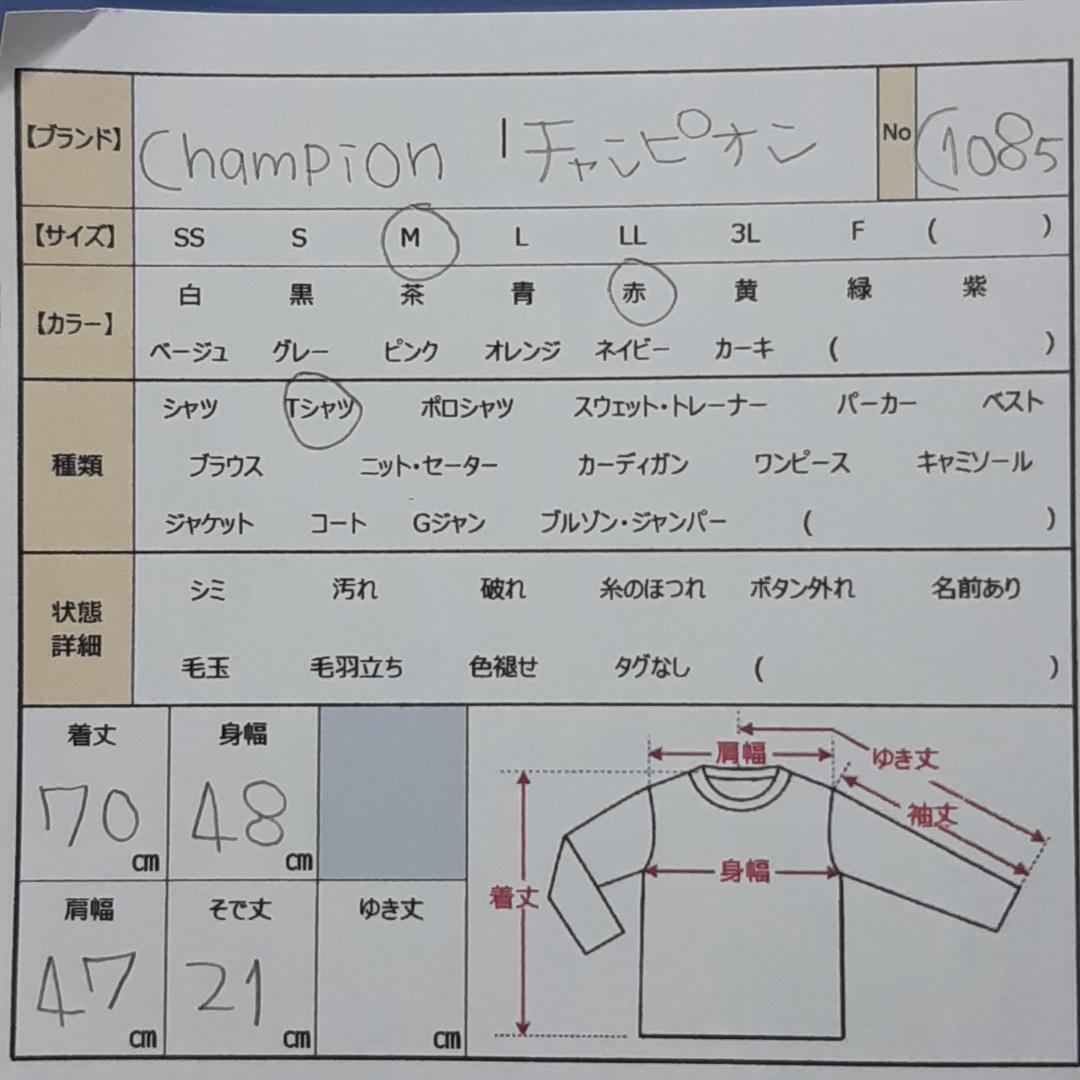 【ブランド】 Champion | チャンピオン No (1085
【サイズ】 SS S M L LL 3L F ( )
【カラー】 白 黒 茶 青 赤 黄 緑 紫
ベージュ グレー ピンク オレンジ ネイビー カーキ ( )
種類 シャツ Tシャツ ポロシャツ スウェット・トレーナー パーカー ベスト
ブラウス ニット・セーター カーディガン ワンピース キャミソール
ジャケット コート Gジャン ブルゾン・ジャンパー ( )
状態
詳細
シミ 汚れ 破れ 糸のほつれ ボタン外れ 名前あり
毛玉 毛羽立ち 色褪せ タグなし ( )
着丈 身幅
70 cm 48 cm
肩幅 そで丈 ゆき丈
47 cm 21 cm cm
肩幅 ゆき丈
袖丈
身幅
着丈